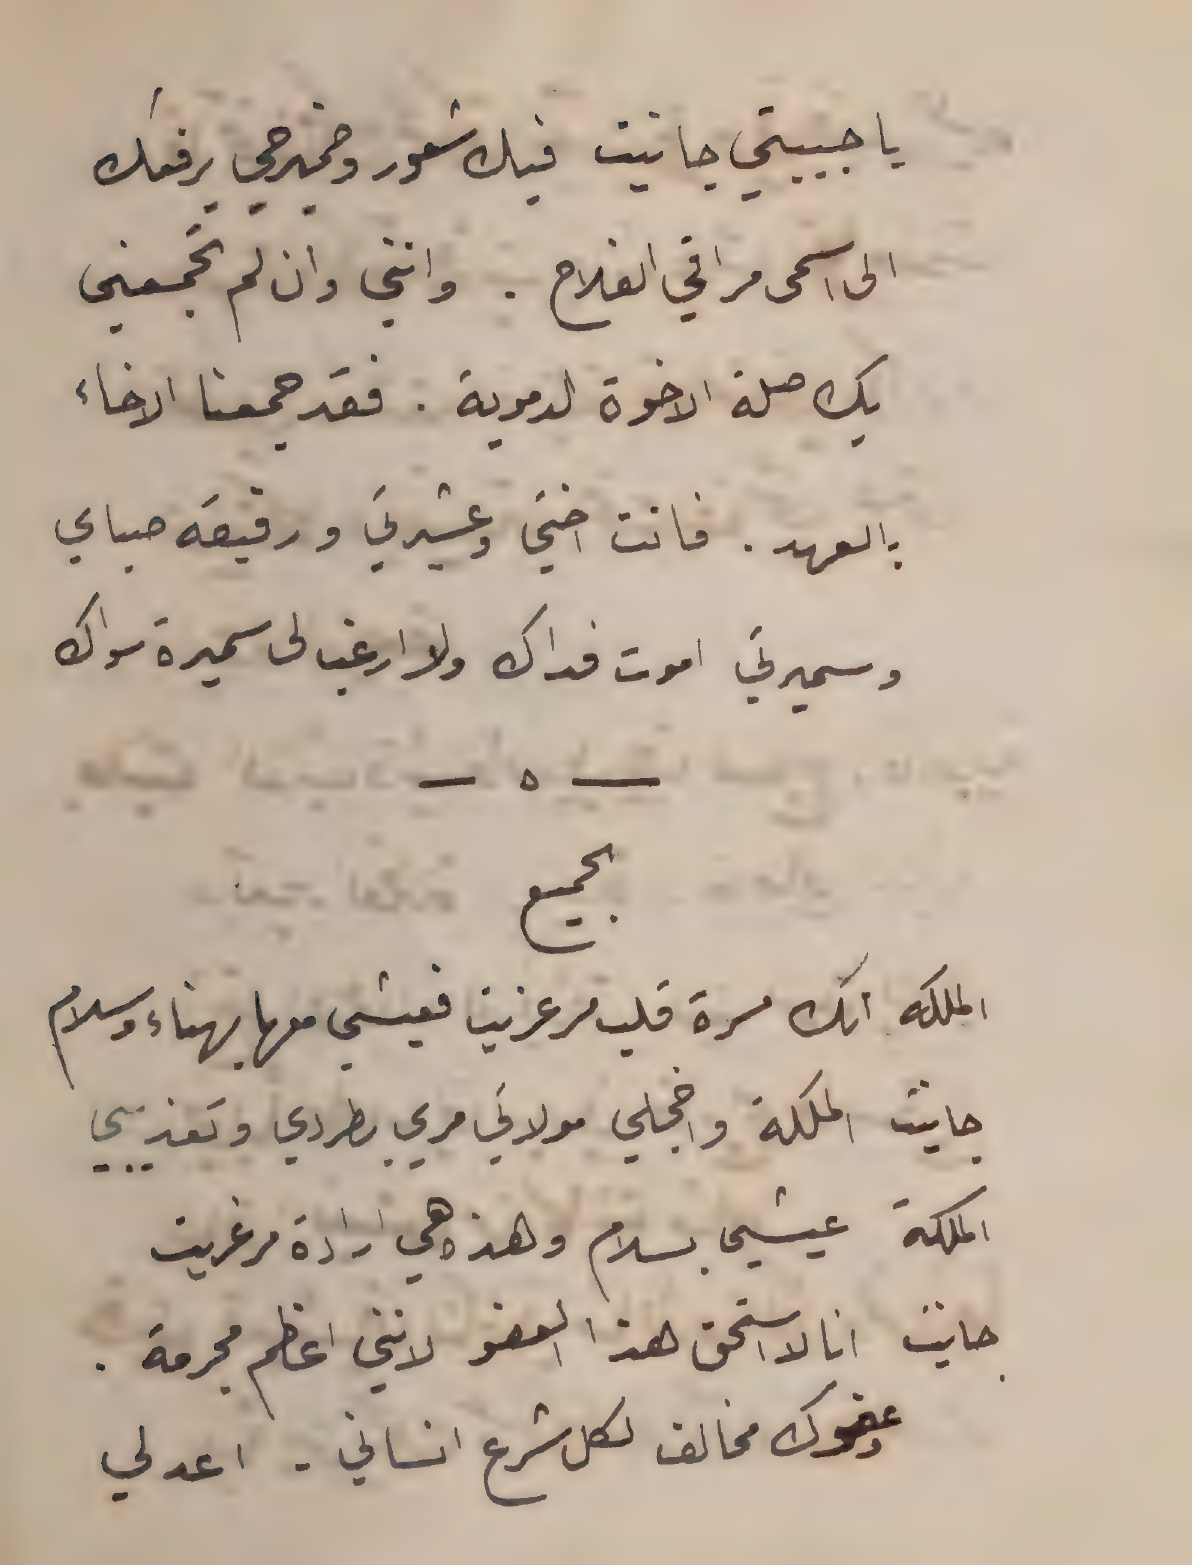 يا حبيبتي جانيت فيك شعور وضمير حي يرفعك
الى اسمى مراقي الفلاح . وانني وان لم تجمعني
بك صلة الاخوة الدموية . فقد جمعنا الاخاء
بالعهد . فانت اختي وعشيرتي ورفيقة صباي
وسميرتي اموت فداك ولا ارغب الى سميرة سواك
— ه —
الجميع
الملكه انك مسرة قلب مرغريت فعيشي معها بهناء وسلام
جانيت الملكة واخجلي مولاتي مري بطردي وتعذيبي
الملكة عيشي بسلام وهذه هي ارادة مرغريت
جانيت انا لا استحق هذا العفو لانني اعظم مجرمة .
وعفوك مخالف لكل شرع انساني - اعدلي